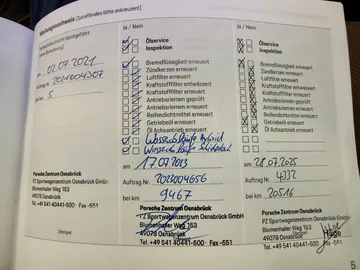 Wartungsnachweis (Zutreffendes bitte ankreuzen!)
Ja / Nein
Ölservice
Inspektion
Bremsflüssigkeit erneuert
Zündkerzen erneuert
Luftfilter erneuert
Kraftstofffilter entwässert
Kraftstofffilter erneuert
Antriebsriemen geprüft
Antriebsriemen erneuert
Reifendichtmittel erneuert
Getriebeöl erneuert
Öl Achsantrieb erneuert
am
Auftrag Nr. 2023004656
bei km 9467
Porsche Zentrum Osnabrück
PZ Sportwagenzentrum Osnabrück GmbH
Blumenhaller Weg 153
49078 Osnabrück
Tel. +49 541 40441-500 · Fax -551
Ja / Nein
Ölservice
Inspektion
Bremsflüssigkeit erneuert
Zündkerzen erneuert
Luftfilter erneuert
Kraftstofffilter entwässert
Kraftstofffilter erneuert
Antriebsriemen geprüft
Antriebsriemen erneuert
Reifendichtmittel erneuert
Getriebeöl erneuert
Öl Achsantrieb erneuert
am
Auftrag Nr.
bei km 20516
Porsche Zentrum Osnabrück
PZ Sportwagenzentrum Osnabrück GmbH
Blumenhaller Weg 153
49078 Osnabrück
Tel. +49 541 40441-500 · Fax -551
am 02.07.2021
Auftrag Nr.
bei km 5
Porsche Zentrum Osnabrück
PZ Sportwagenzentrum Osnabrück GmbH
Blumenhaller Weg 153
49078 Osnabrück
Tel. +49 541 40441-500 · Fax -551
Stempel
5